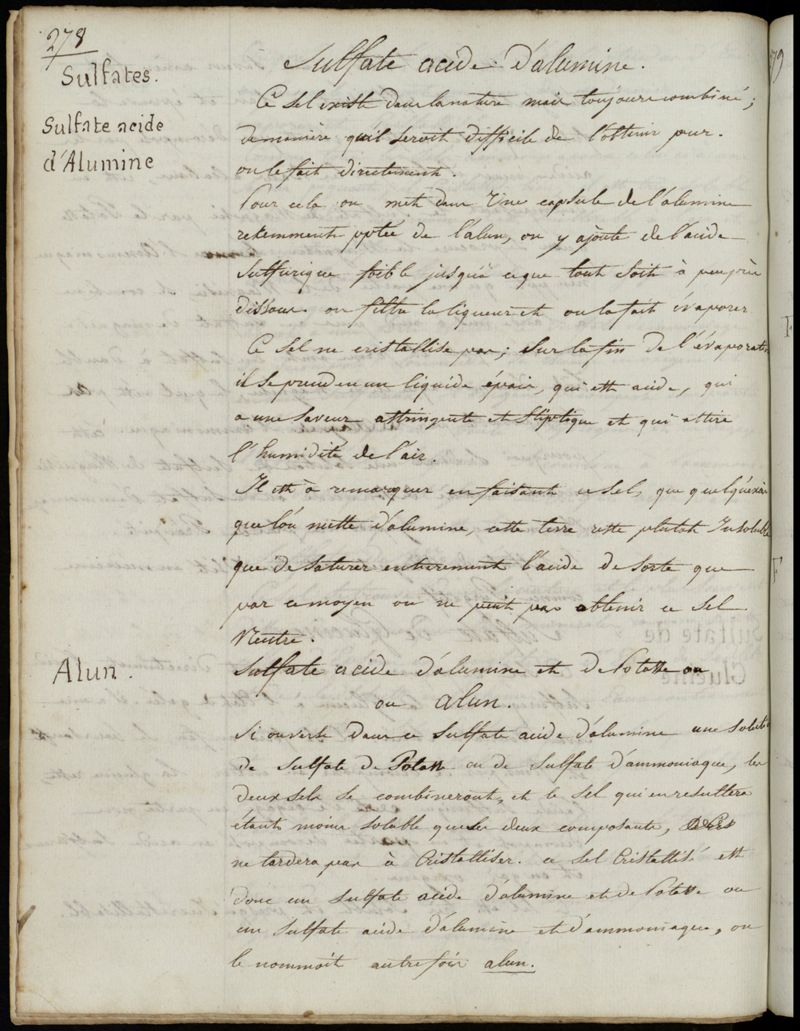 278
Sulfates.
Sulfate acide
d'Alumine
Sulfate acide d'alumine.
Ce sel existe dans la nature mais toujours combiné;
de maniere qu'il seroit difficile de l'obtenir pur.
on le fait directement.
Pour cela on met dans une capsule de l'alumine
recemment pptée de l'alun, on y ajoute de l'acide
sulfurique foible jusqu'à ce que tout soit à peu près
dissous on filtre la liqueur et on la fait évaporer
Ce sel ne cristallise pas; sur la fin de l'évaporation
il se prend en un liquide épais, qui est acide, qui
a une saveur astringente et stiptique et qui attire
l'humidité de l'air.
Il est à remarquer en faisant ce sel, que quelqu'excès
que l'on mette d'alumine, cette terre reste plutot insoluble
que de saturer entierement l'acide de sorte que
par ce moyen on ne peut pas obtenir ce sel
Neutre.
Alun.
Sulfate acide d'alumine et de Potasse ou
ou alun.
Si on verse dans ce sulfate acide d'alumine une solution
de sulfate de Potasse ou de sulfate d'ammoniaque, les
deux sels se combineront, et le sel qui en resultera
étant moins soluble que les deux composants,
ne tardera pas à cristalliser. ce sel cristallisé est
donc un sulfate acide d'alumine et de Potasse ou
un sulfate acide d'alumine et d'ammoniaque, on
le nommoit autrefois alun.